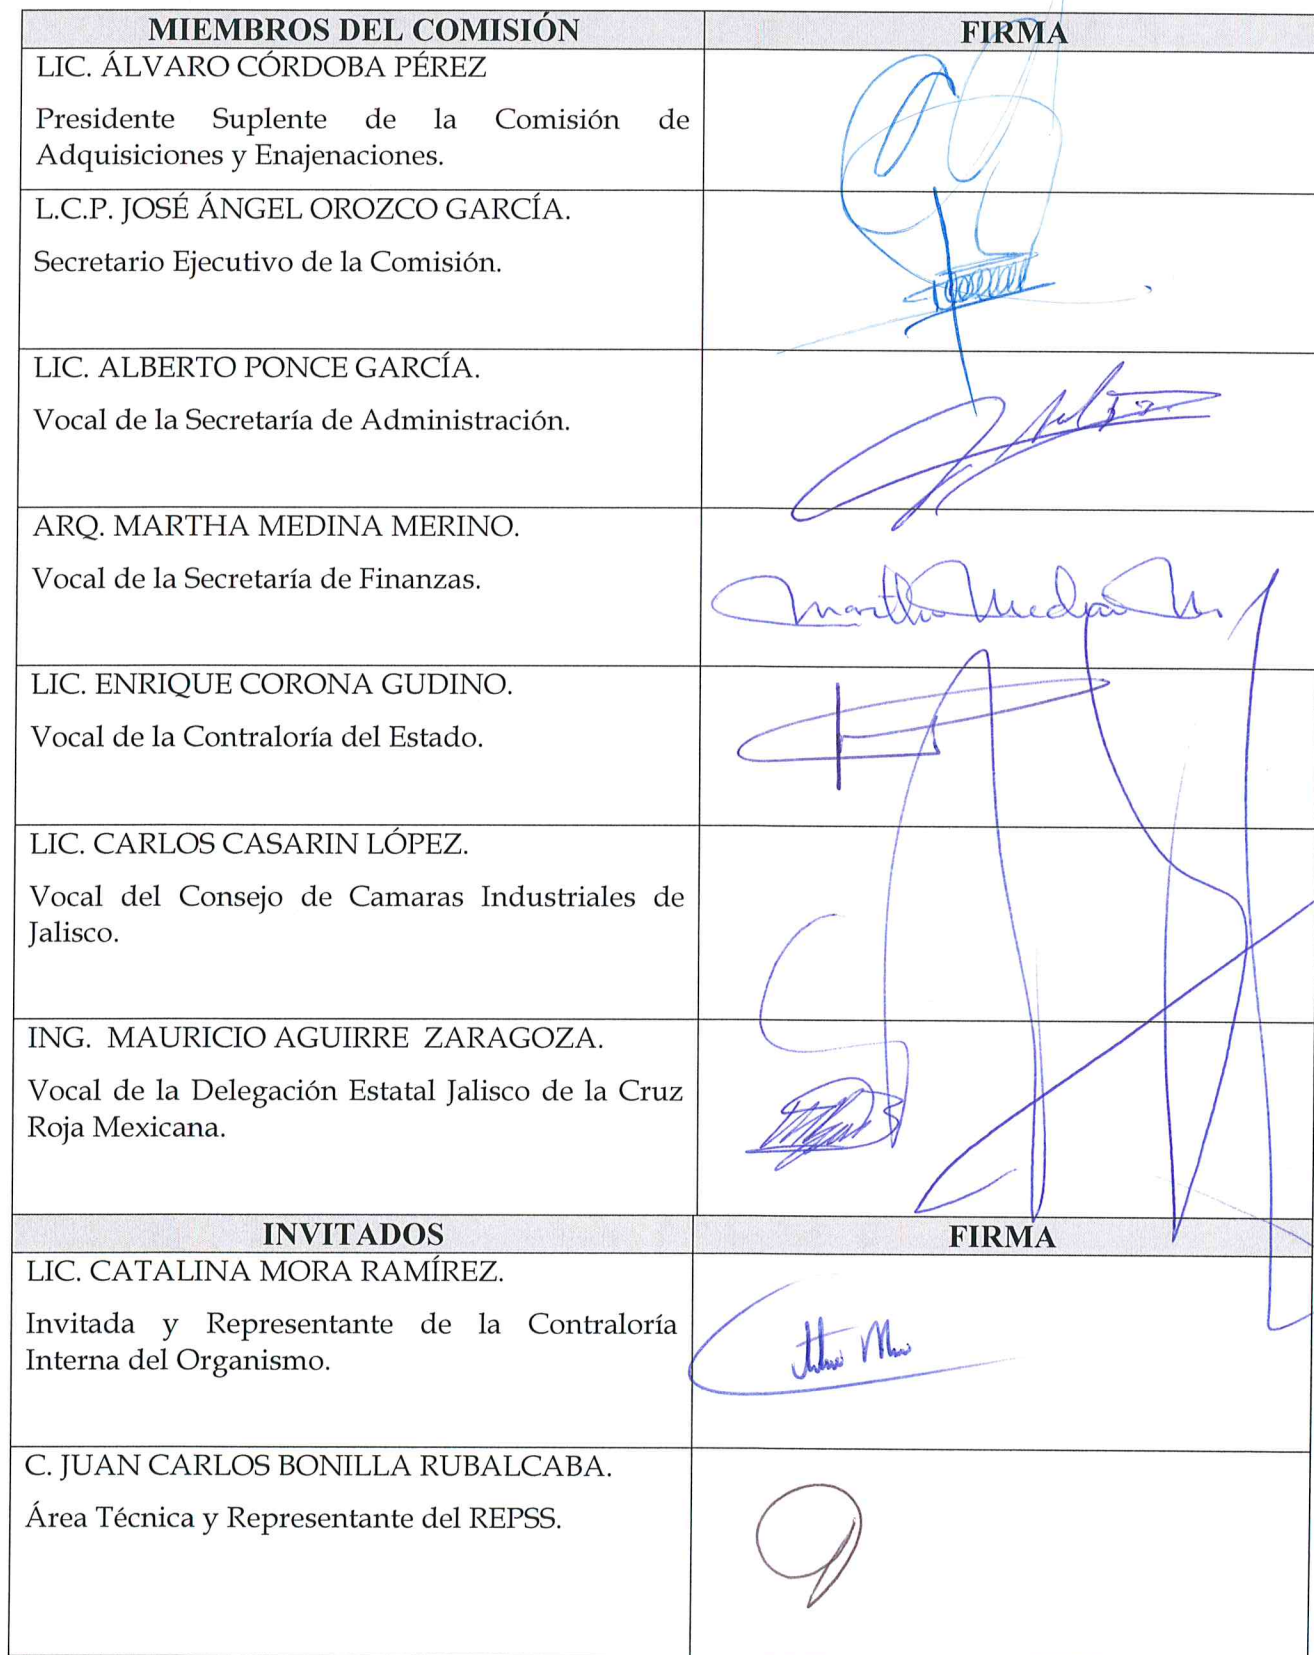 MIEMBROS DEL COMISIÓN FIRMA
LIC. ÁLVARO CÓRDOBA PÉREZ
Presidente Suplente de la Comisión de
Adquisiciones y Enajenaciones.
L.C.P. JOSÉ ÁNGEL OROZCO GARCÍA.
Secretario Ejecutivo de la Comisión.
LIC. ALBERTO PONCE GARCÍA.
Vocal de la Secretaría de Administración.
ARQ. MARTHA MEDINA MERINO.
Vocal de la Secretaría de Finanzas.
Martha Medina
LIC. ENRIQUE CORONA GUDINO.
Vocal de la Contraloría del Estado.
LIC. CARLOS CASARIN LÓPEZ.
Vocal del Consejo de Camaras Industriales de
Jalisco.
ING. MAURICIO AGUIRRE ZARAGOZA.
Vocal de la Delegación Estatal Jalisco de la Cruz
Roja Mexicana.
INVITADOS FIRMA
LIC. CATALINA MORA RAMÍREZ.
Invitada y Representante de la Contraloría
Interna del Organismo.
C. JUAN CARLOS BONILLA RUBALCABA.
Área Técnica y Representante del REPSS.